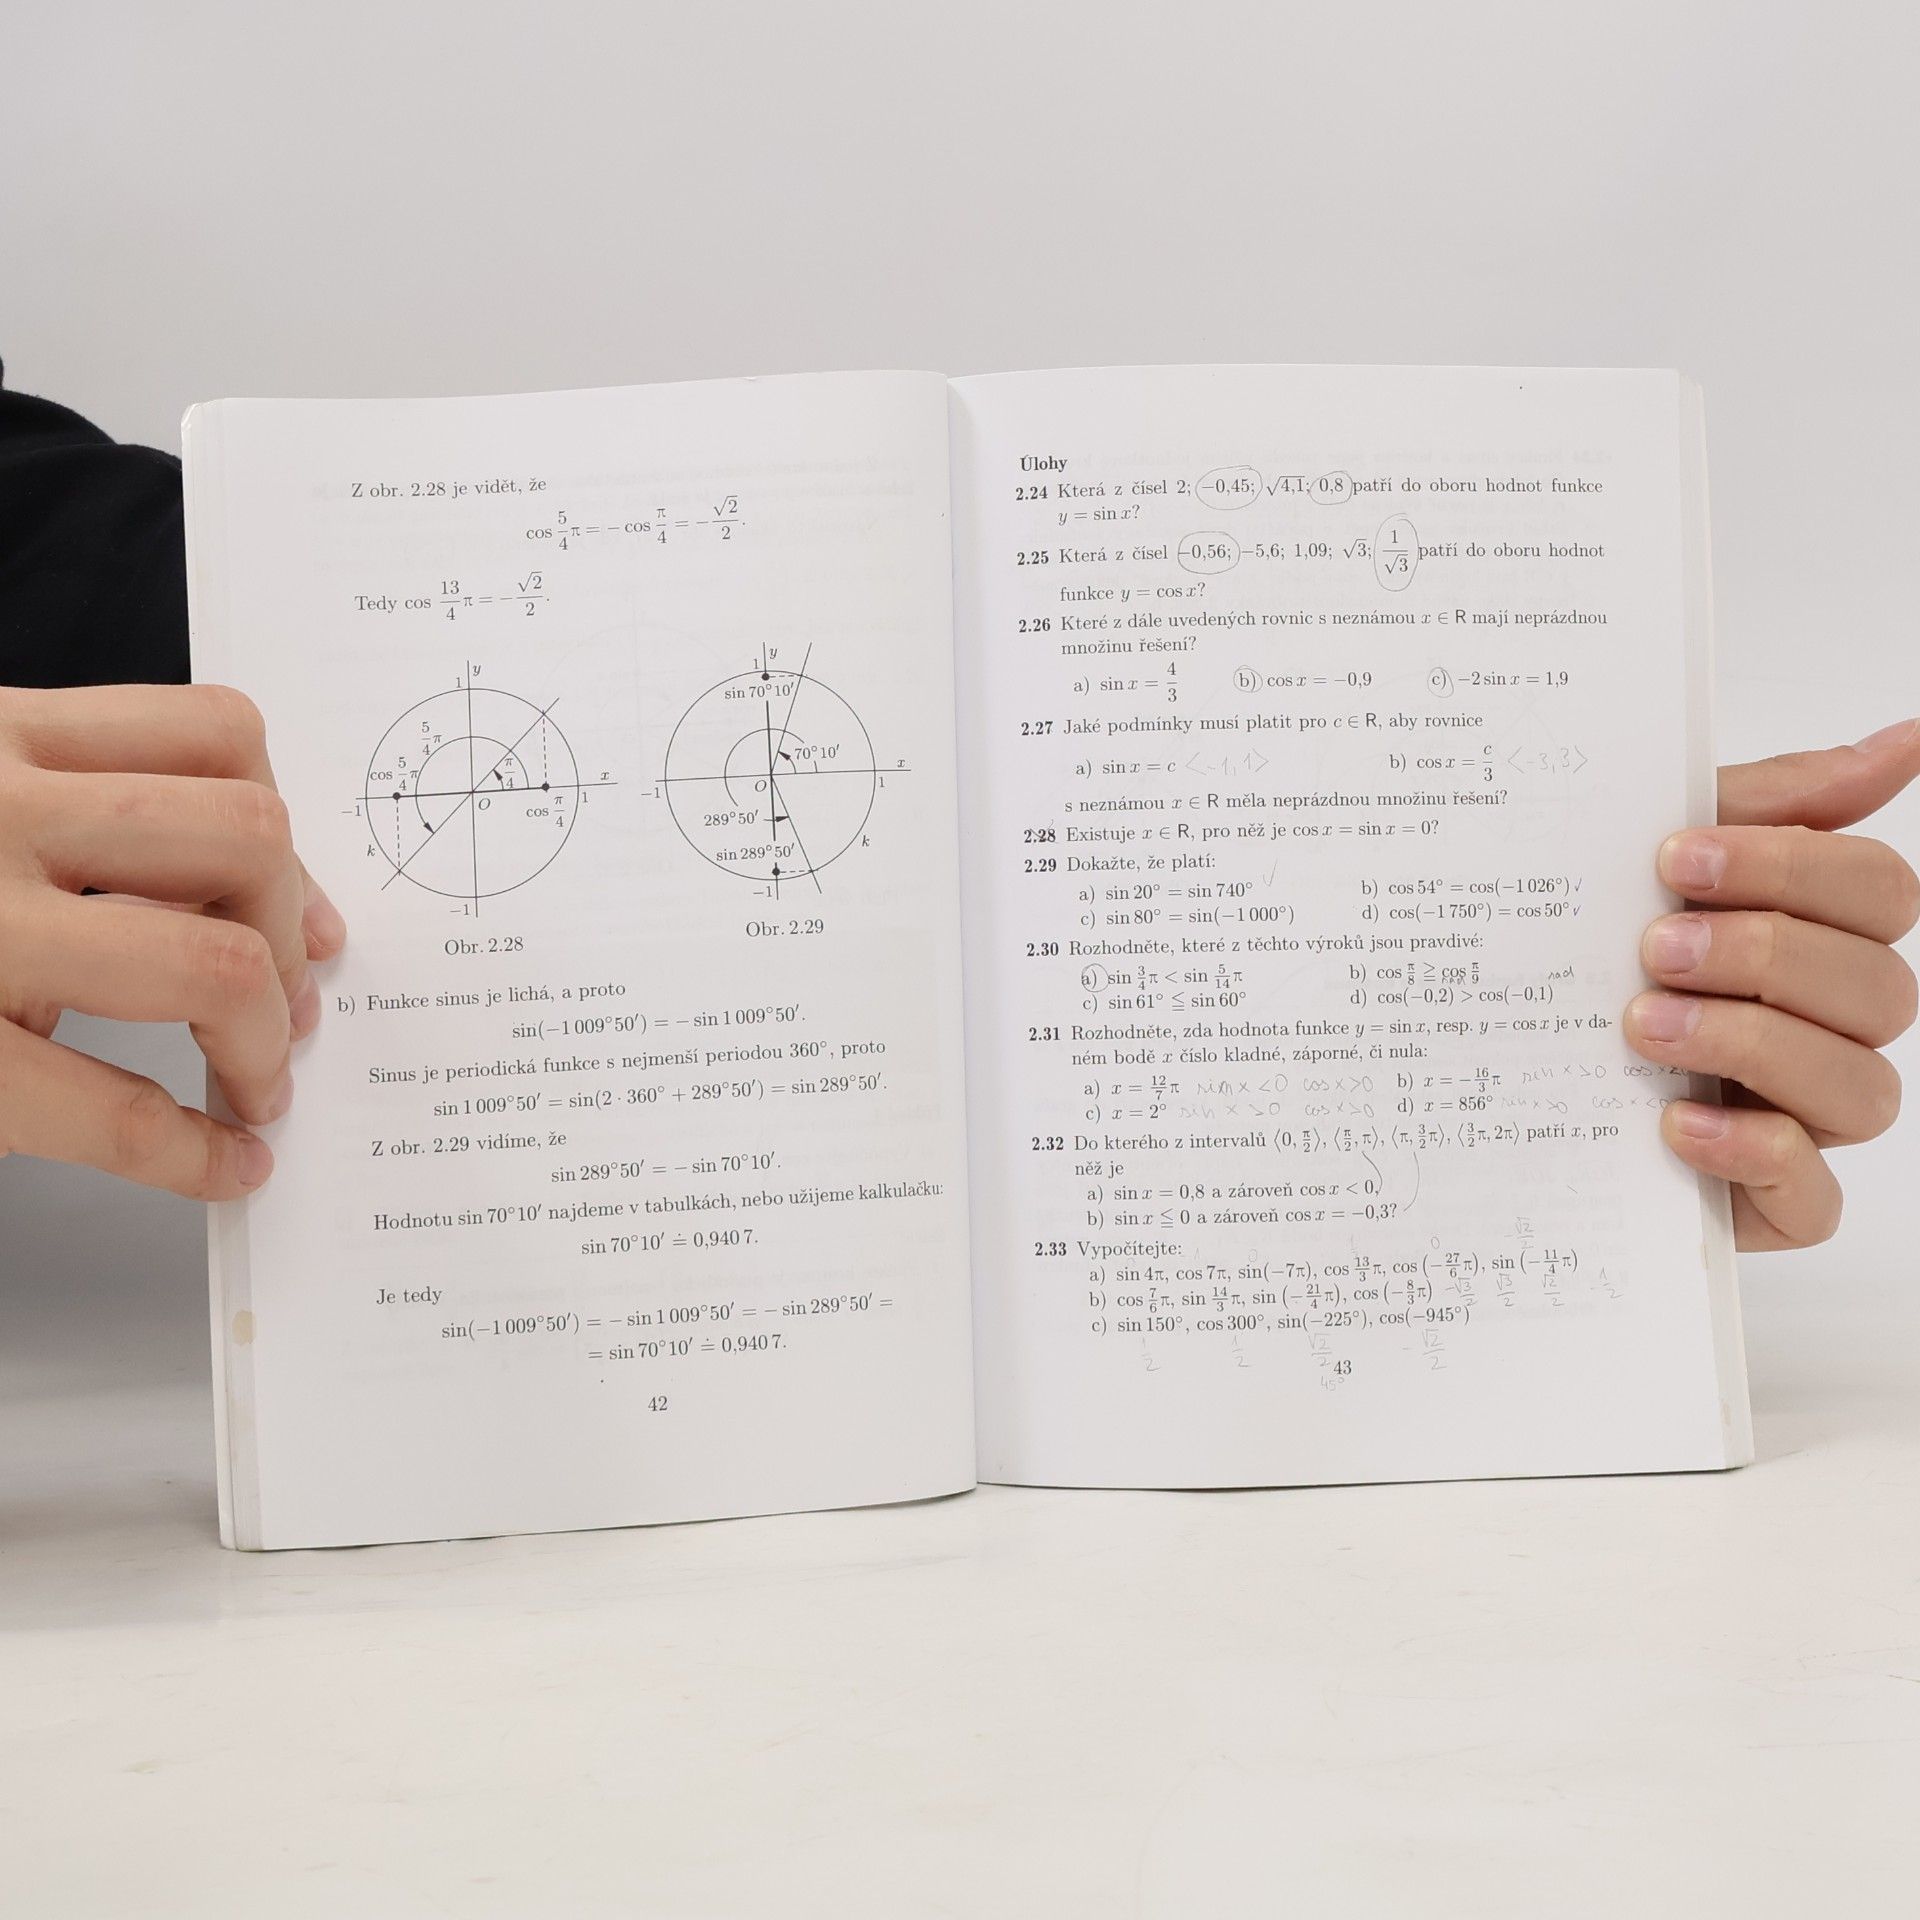 Z obr. 2.28 je vidět, že
cos 5/4 π = − cos π/4 = − √2/2.
Tedy cos 13/4 π = − √2/2.
y
1
5/4 π
cos 5/4 π
π/4
x
−1
O
cos π/4
1
k
−1
Obr. 2.28
y
1
sin 70° 10′
70° 10′
x
−1
O
1
289° 50′
sin 289° 50′
k
−1
Obr. 2.29
b) Funkce sinus je lichá, a proto
sin(−1 009° 50′) = − sin 1 009° 50′.
Sinus je periodická funkce s nejmenší periodou 360°, proto
sin 1 009° 50′ = sin(2 · 360° + 289° 50′) = sin 289° 50′.
Z obr. 2.29 vidíme, že
sin 289° 50′ = − sin 70° 10′.
Hodnotu sin 70° 10′ najdeme v tabulkách, nebo užijeme kalkulačku:
sin 70° 10′ ≐ 0,940 7.
Je tedy
sin(−1 009° 50′) = − sin 1 009° 50′ = − sin 289° 50′ =
= sin 70° 10′ ≐ 0,940 7.
42
Úlohy
2.24 Která z čísel 2; −0,45; √4,1; 0,8 patří do oboru hodnot funkce
y = sin x?
2.25 Která z čísel −0,56; −5,6; 1,09; √3; 1/√3 patří do oboru hodnot
funkce y = cos x?
2.26 Které z dále uvedených rovnic s neznámou x ∈ R mají neprázdnou
množinu řešení?
a) sin x = 4/3 b) cos x = −0,9 c) −2 sin x = 1,9
2.27 Jaké podmínky musí platit pro c ∈ R, aby rovnice
a) sin x = c <−1, 1> b) cos x = c/3 <−3, 3>
s neznámou x ∈ R měla neprázdnou množinu řešení?
2.28 Existuje x ∈ R, pro něž je cos x = sin x = 0?
2.29 Dokažte, že platí:
a) sin 20° = sin 740° ✓ b) cos 54° = cos(−1 026°) ✓
c) sin 80° = sin(−1 000°) d) cos(−1 750°) = cos 50° ✓
2.30 Rozhodněte, které z těchto výroků jsou pravdivé:
a) sin 3/4 π < sin 5/14 π b) cos π/8 ≧ cos π/9
rad rad
c) sin 61° ≦ sin 60° d) cos(−0,2) > cos(−0,1)
2.31 Rozhodněte, zda hodnota funkce y = sin x, resp. y = cos x je v da-
ném bodě x číslo kladné, záporné, či nula:
a) x = 12/7 π sin x < 0 cos x > 0 b) x = −16/3 π sin x > 0 cos x < 0
c) x = 2° sin x > 0 cos x > 0 d) x = 856° sin x > 0 cos x < 0
2.32 Do kterého z intervalů ⟨0, π/2⟩, ⟨π/2, π⟩, ⟨π, 3/2 π⟩, ⟨3/2 π, 2π⟩ patří x, pro
něž je
a) sin x = 0,8 a zároveň cos x < 0,
b) sin x ≦ 0 a zároveň cos x = −0,3?
2.33 Vypočítejte:
−1 0 0 −√2/2
a) sin 4π, cos 7π, sin(−7π), cos 13/3 π, cos (−27/6 π), sin (−11/4 π)
b) cos 7/6 π, sin 14/3 π, sin (−21/4 π), cos (−8/3 π) −√3/2 √3/2 √2/2 −1/2
c) sin 150°, cos 300°, sin(−225°), cos(−945°)
1/2 1/2 √2/2 −√2/2
45°
43